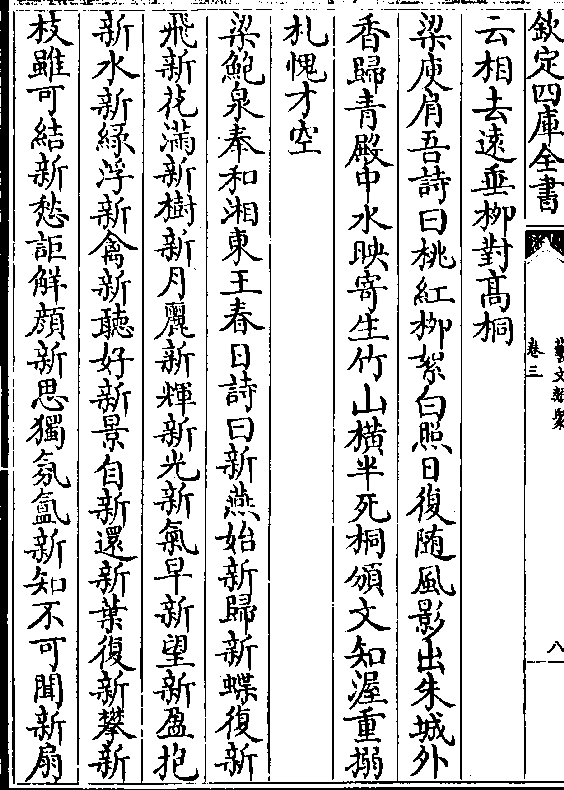 欽定四庫全書
藝文類聚
卷三
八
云相去遠垂栁對髙桐
梁庾肩吾詩曰桃紅栁絮白照日復随風影出朱城外
香歸青殿中水映寄生竹山横半死桐頒文知渥重搦
札愧才空
梁鮑泉奉和湘東王春日詩曰新燕始新歸新蝶復新
飛新花滿新樹新月麗新輝新光新氣早新望新盈抱
新水新綠浮新禽新聽好新景自新還新葉復新攀新
枝雖可結新愁詎解顔新思獨氛氲新知不可聞新扇